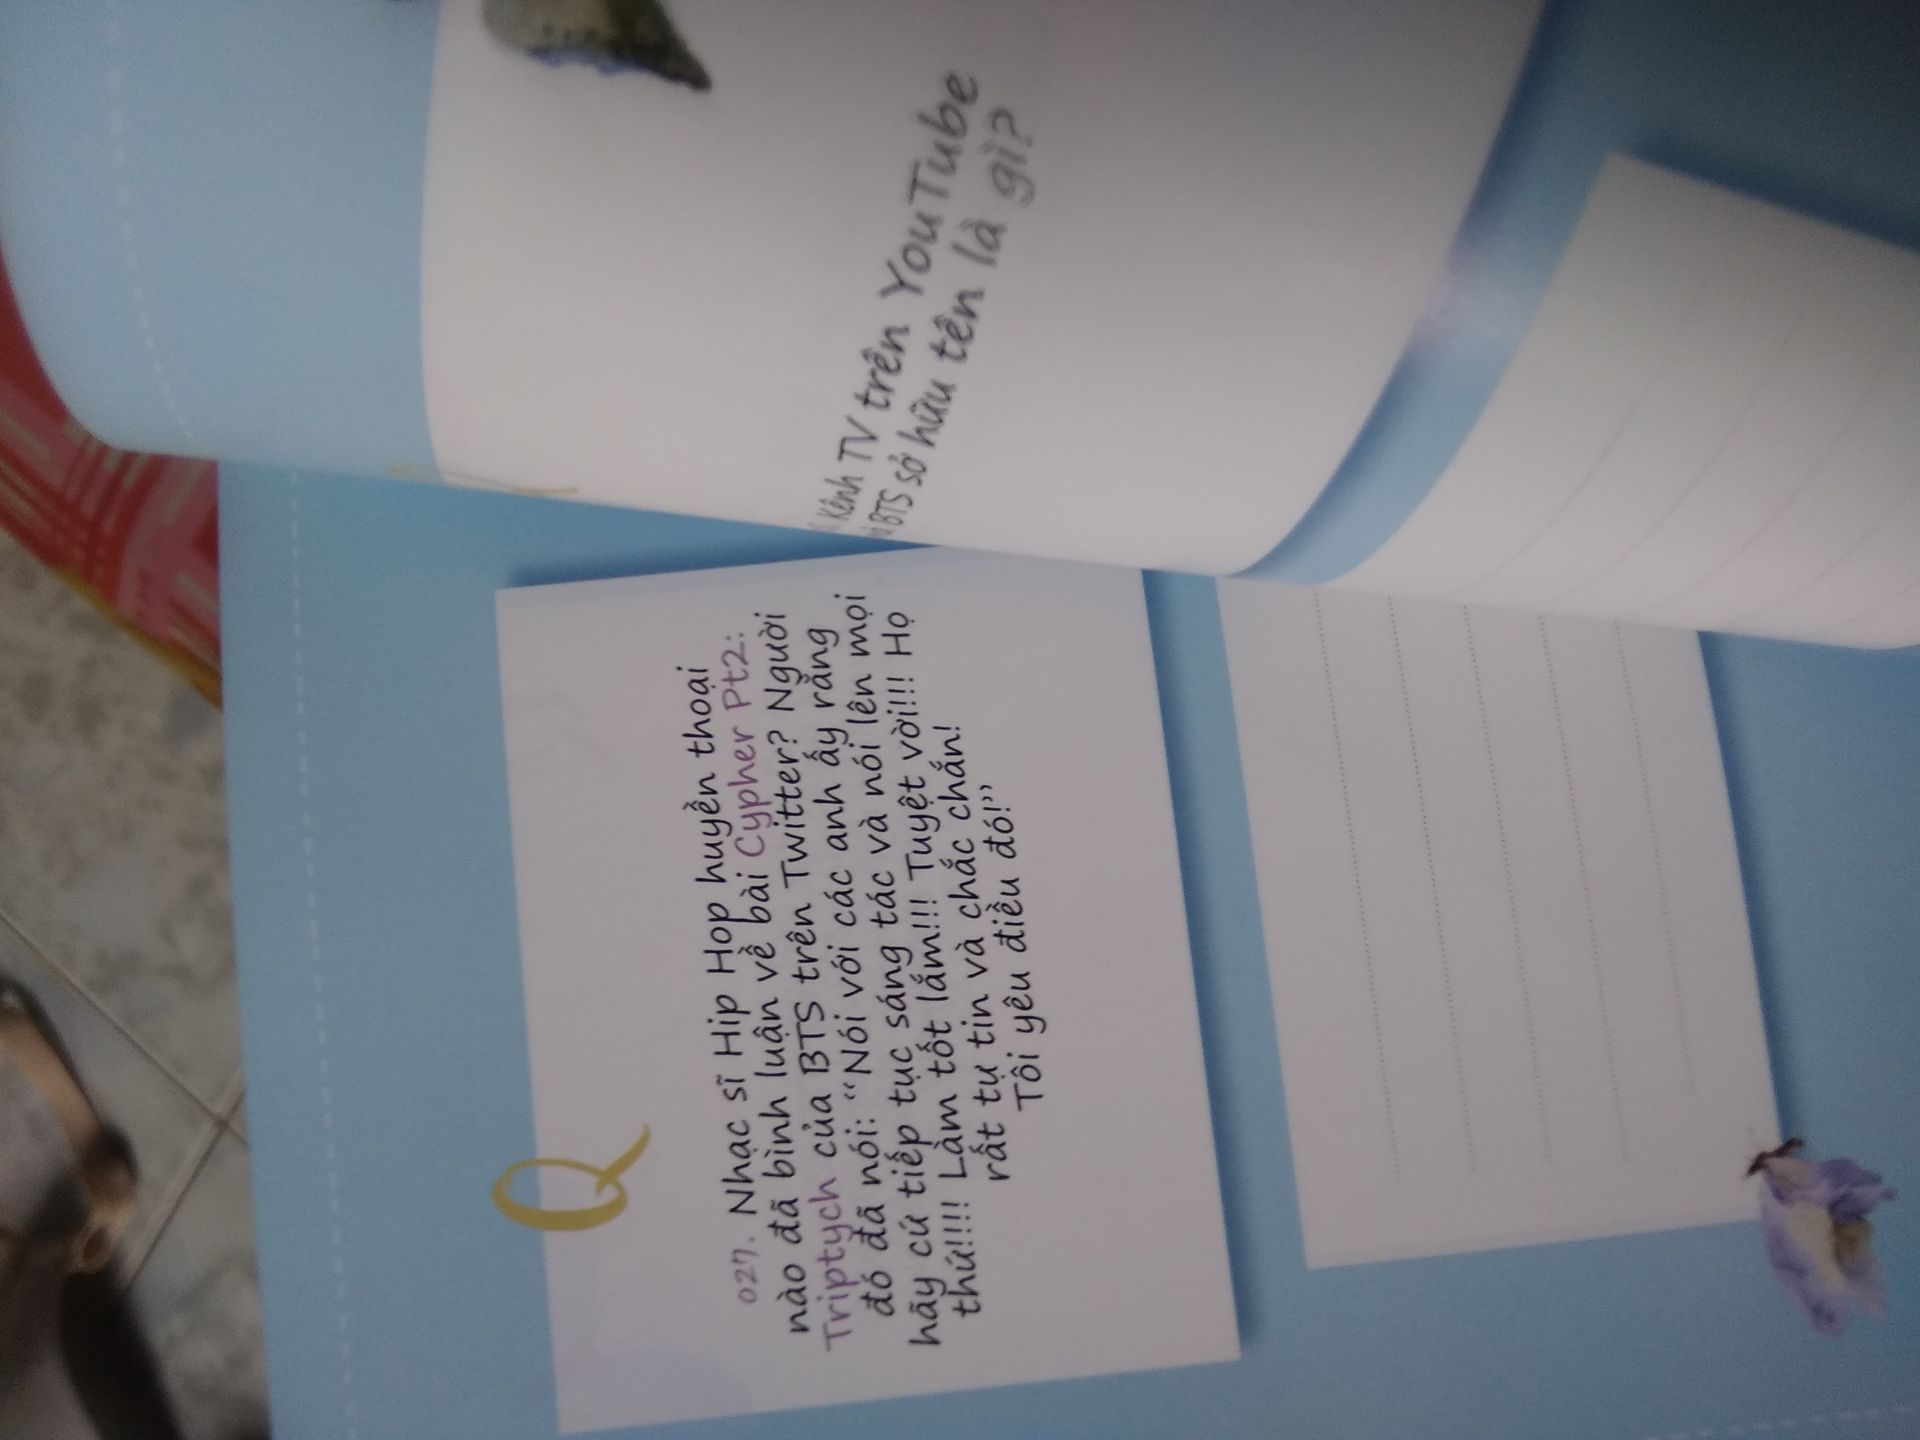 Q
027. Nhạc sĩ Hip Hop huyền thoại
nào đã bình luận về bài Cypher Pt2:
Triptych của BTS trên Twitter? Người
đó đã nói: “Nói với các anh ấy rằng
hãy cứ tiếp tục sáng tác và nói lên mọi
thứ!!!! Làm tốt lắm!!! Tuyệt vời!!! Họ
rất tự tin và chắc chắn!
Tôi yêu điều đó!”
Kênh TV trên YouTube
BTS sở hữu tên là gì?